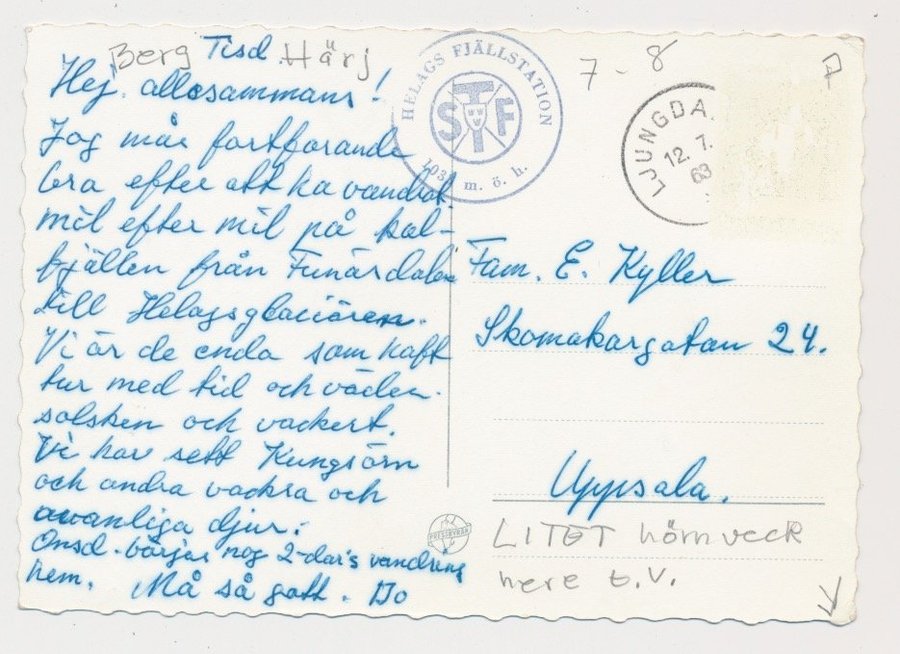 Berg Tisd. Härj
Hej allesammans!
Jag mår fortfarande
bra efter att ha vandrat
mil efter mil på kal-
fjällen från Funäsdalen
till Helagsglaciären.
Vi är de enda som haft
tur med tid och väder.
solsken och vackert.
Vi har sett Kungsörn
och andra vackra och
ovanliga djur.
Onsd. börjar nog 2-dars vandring
hem. Må så gott.
HELAGS FJÄLLSTATION
STF
m. ö. h.
7-8
LJUNGDA
12. 7.
63
Fam. E. Kyller
Skomakargatan 24.
Uppsala.
PRESSBYRÅN
LITET hörnveck
nere t.v.